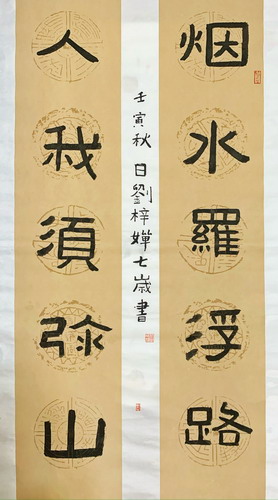 烟水羅浮路
壬寅秋日劉梓嬋七歲書
人我須弥山